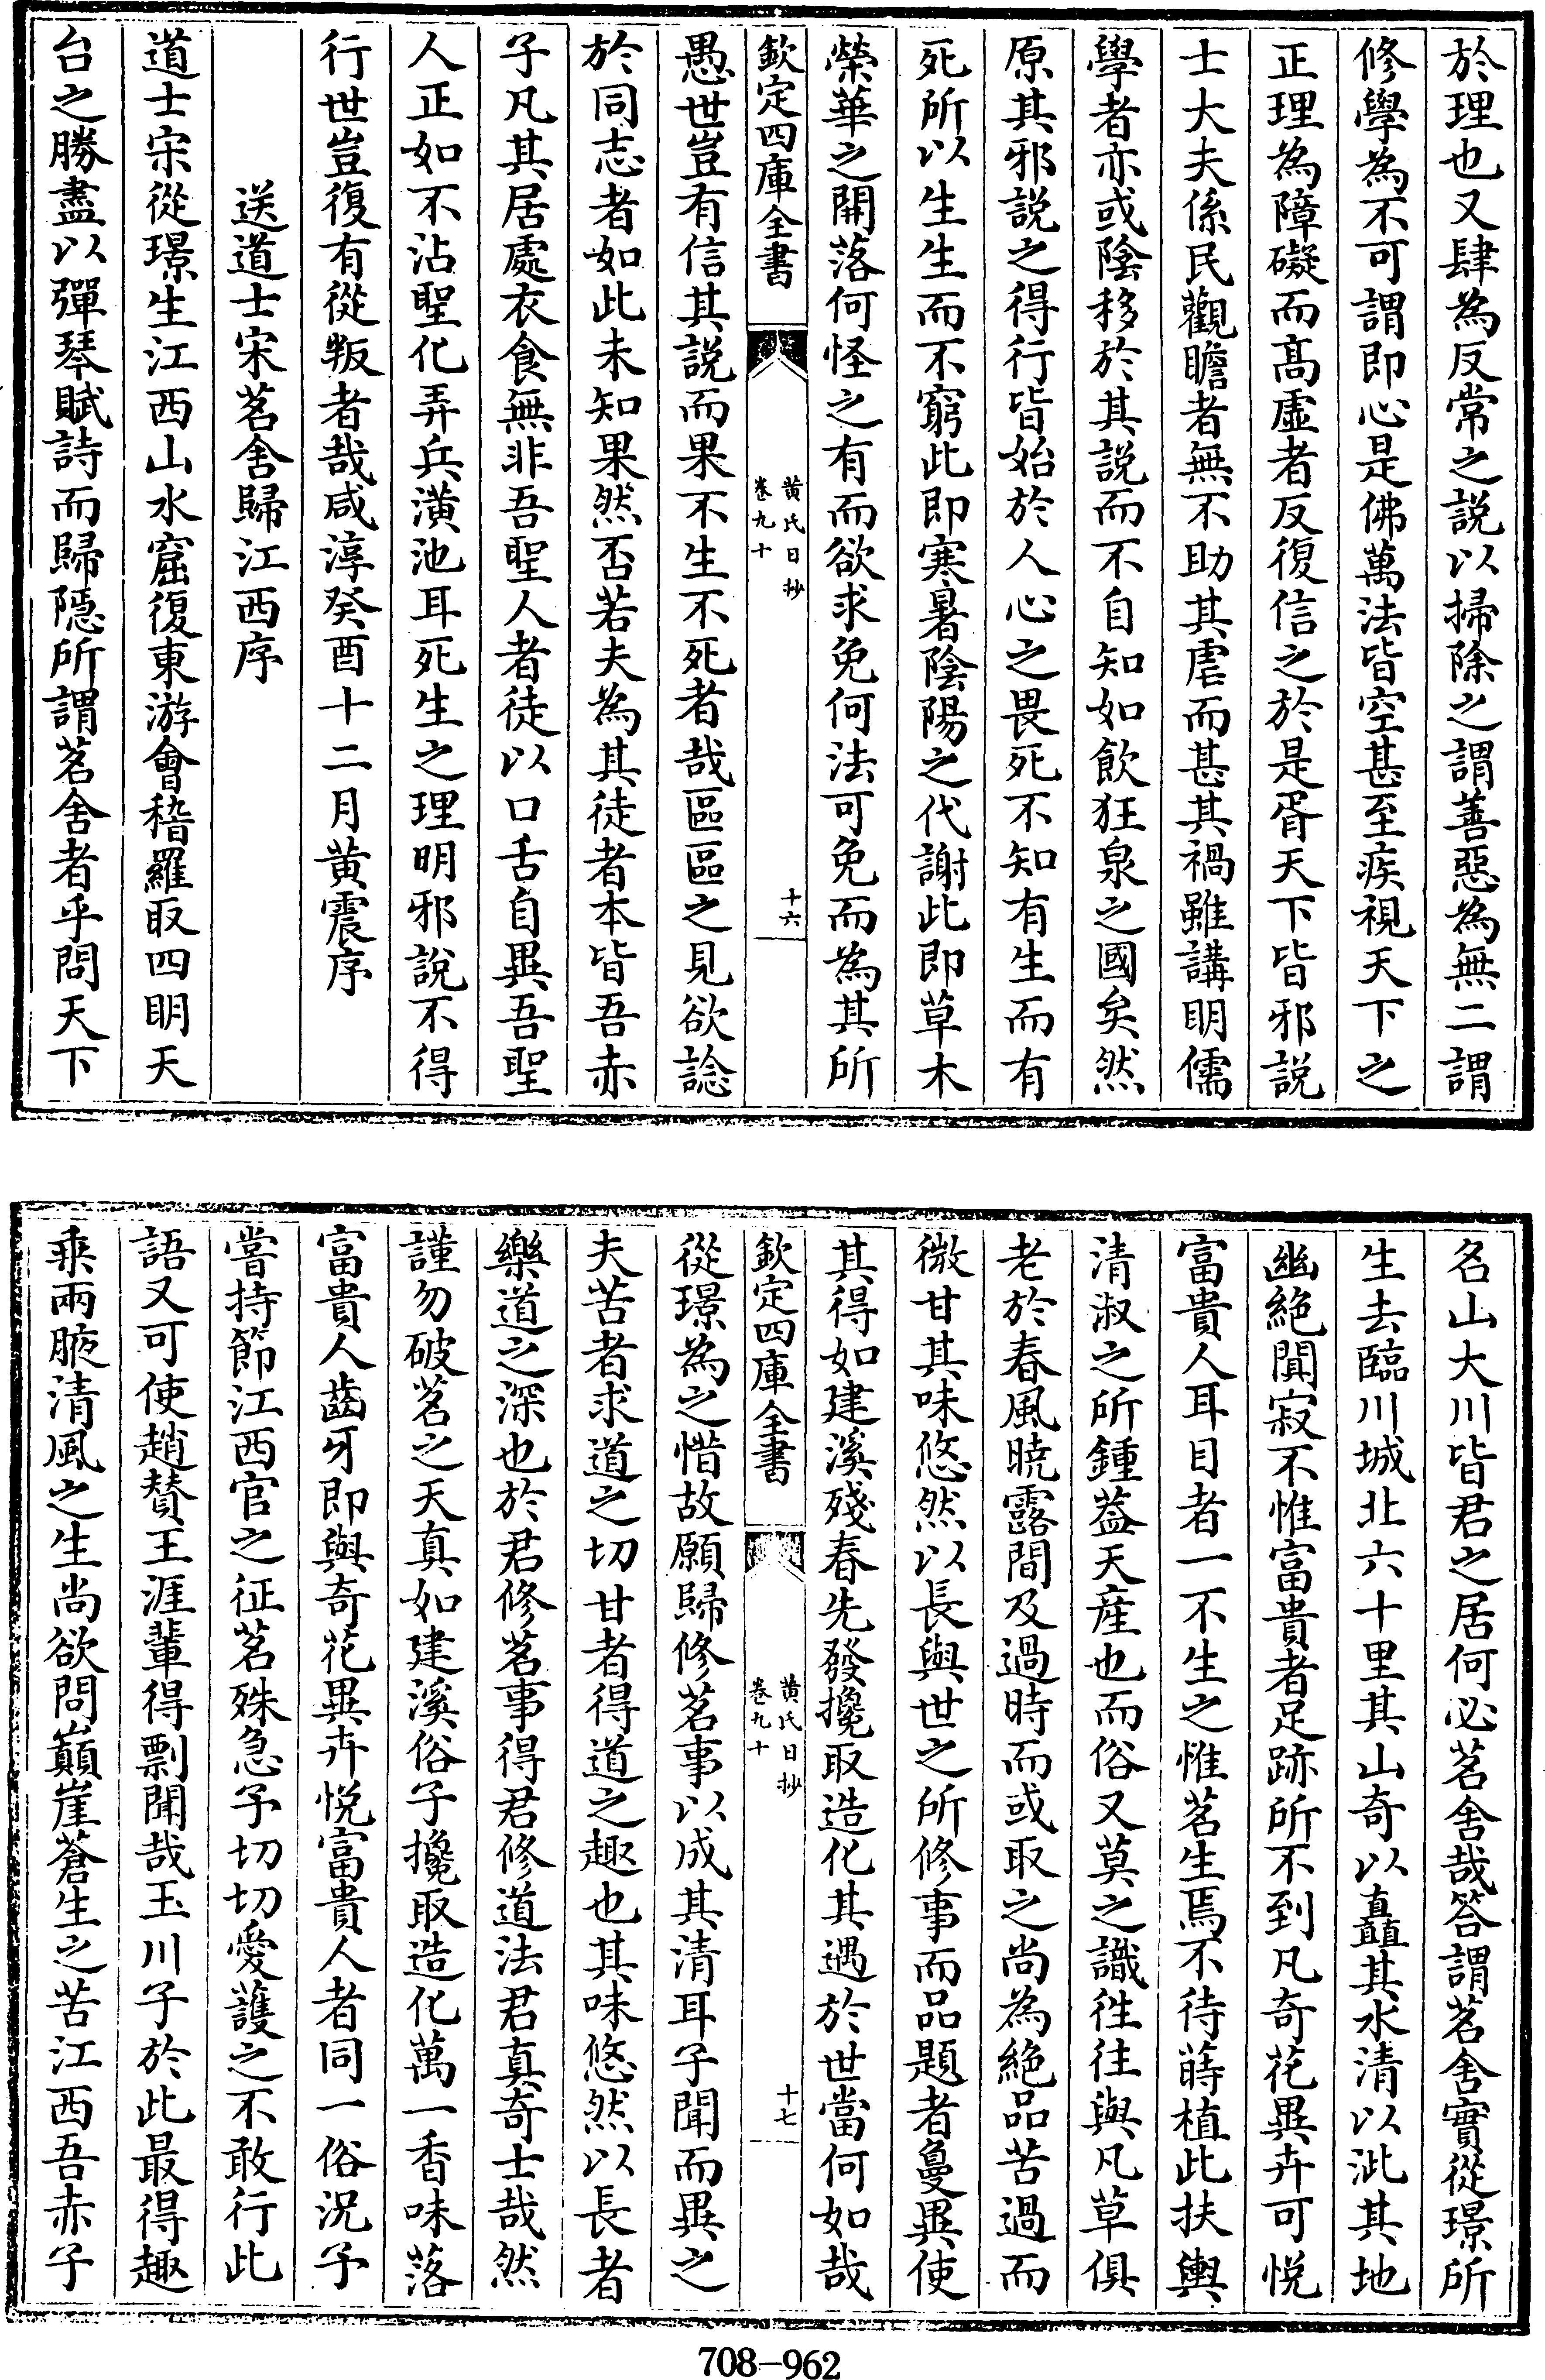 於理也又肆為反常之說以掃除之謂善惡為無二謂
修學為不可謂即心是佛萬法皆空甚至疾視天下之
正理為障礙而髙虛者反復信之於是胥天下皆邪說
士大夫係民觀瞻者無不助其虐而甚其禍雖講明儒
學者亦或陰移於其說而不自知如飲狂泉之國矣然
原其邪說之得行皆始於人心之畏死不知有生而有
死所以生生而不窮此即寒暑陰陽之代謝此即草木
榮華之開落何怪之有而欲求免何法可免而為其所
欽定四庫全書
黄氏日抄
卷九十
十六
愚世豈有信其說而果不生不死者哉區區之見欲諗
於同志者如此未知果然否若夫為其徒者本皆吾赤
子凡其居處衣食無非吾聖人者徒以口舌自異吾聖
人正如不沾聖化弄兵潢池耳死生之理明邪說不得
行世豈復有從叛者哉咸淳癸酉十二月黄震序
送道士宋茗舍歸江西序
道士宋從璟生江西山水窟復東游會稽羅取四明天
台之勝盡以彈琴賦詩而歸隱所謂茗舍者乎問天下
名山大川皆君之居何必茗舍哉答謂茗舍實從璟所
生去臨川城北六十里其山奇以矗其水清以泚其地
幽絕闃寂不惟富貴者足跡所不到凡奇花異卉可悅
富貴人耳目者一不生之惟茗生焉不待蒔植此扶輿
清淑之所鍾葢天産也而俗又莫之識徃往與凡草俱
老於春風曉露間及過時而或取之尚為絕品苦過而
微甘其味悠然以長與世之所修事而品題者敻異使
其得如建溪殘春先發攙取造化其遇於世當何如哉
欽定四庫全書
黄氏日抄
卷九十
十七
從璟為之惜故願歸修茗事以成其清耳予聞而異之
夫苦者求道之切甘者得道之趣也其味悠然以長者
樂道之深也於君修茗事得君修道法君真奇士哉然
謹勿破茗之天真如建溪俗子攙取造化萬一香味落
富貴人齒牙即與奇花異卉悅富貴人者同一俗況予
嘗持節江西官之征茗殊急予切切愛護之不敢行此
語又可使趙贊王涯輩得剽聞哉玉川子於此最得趣
乘兩腋清風之生尚欲問巔崖蒼生之苦江西吾赤子
708-962